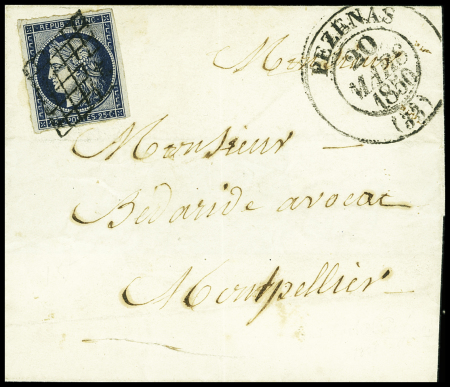 REPUB. FRANC
POSTES 25 C
PEZENAS
20
MARS
1850
(33)
Monsieur
Bédaride avocat
Montpellier